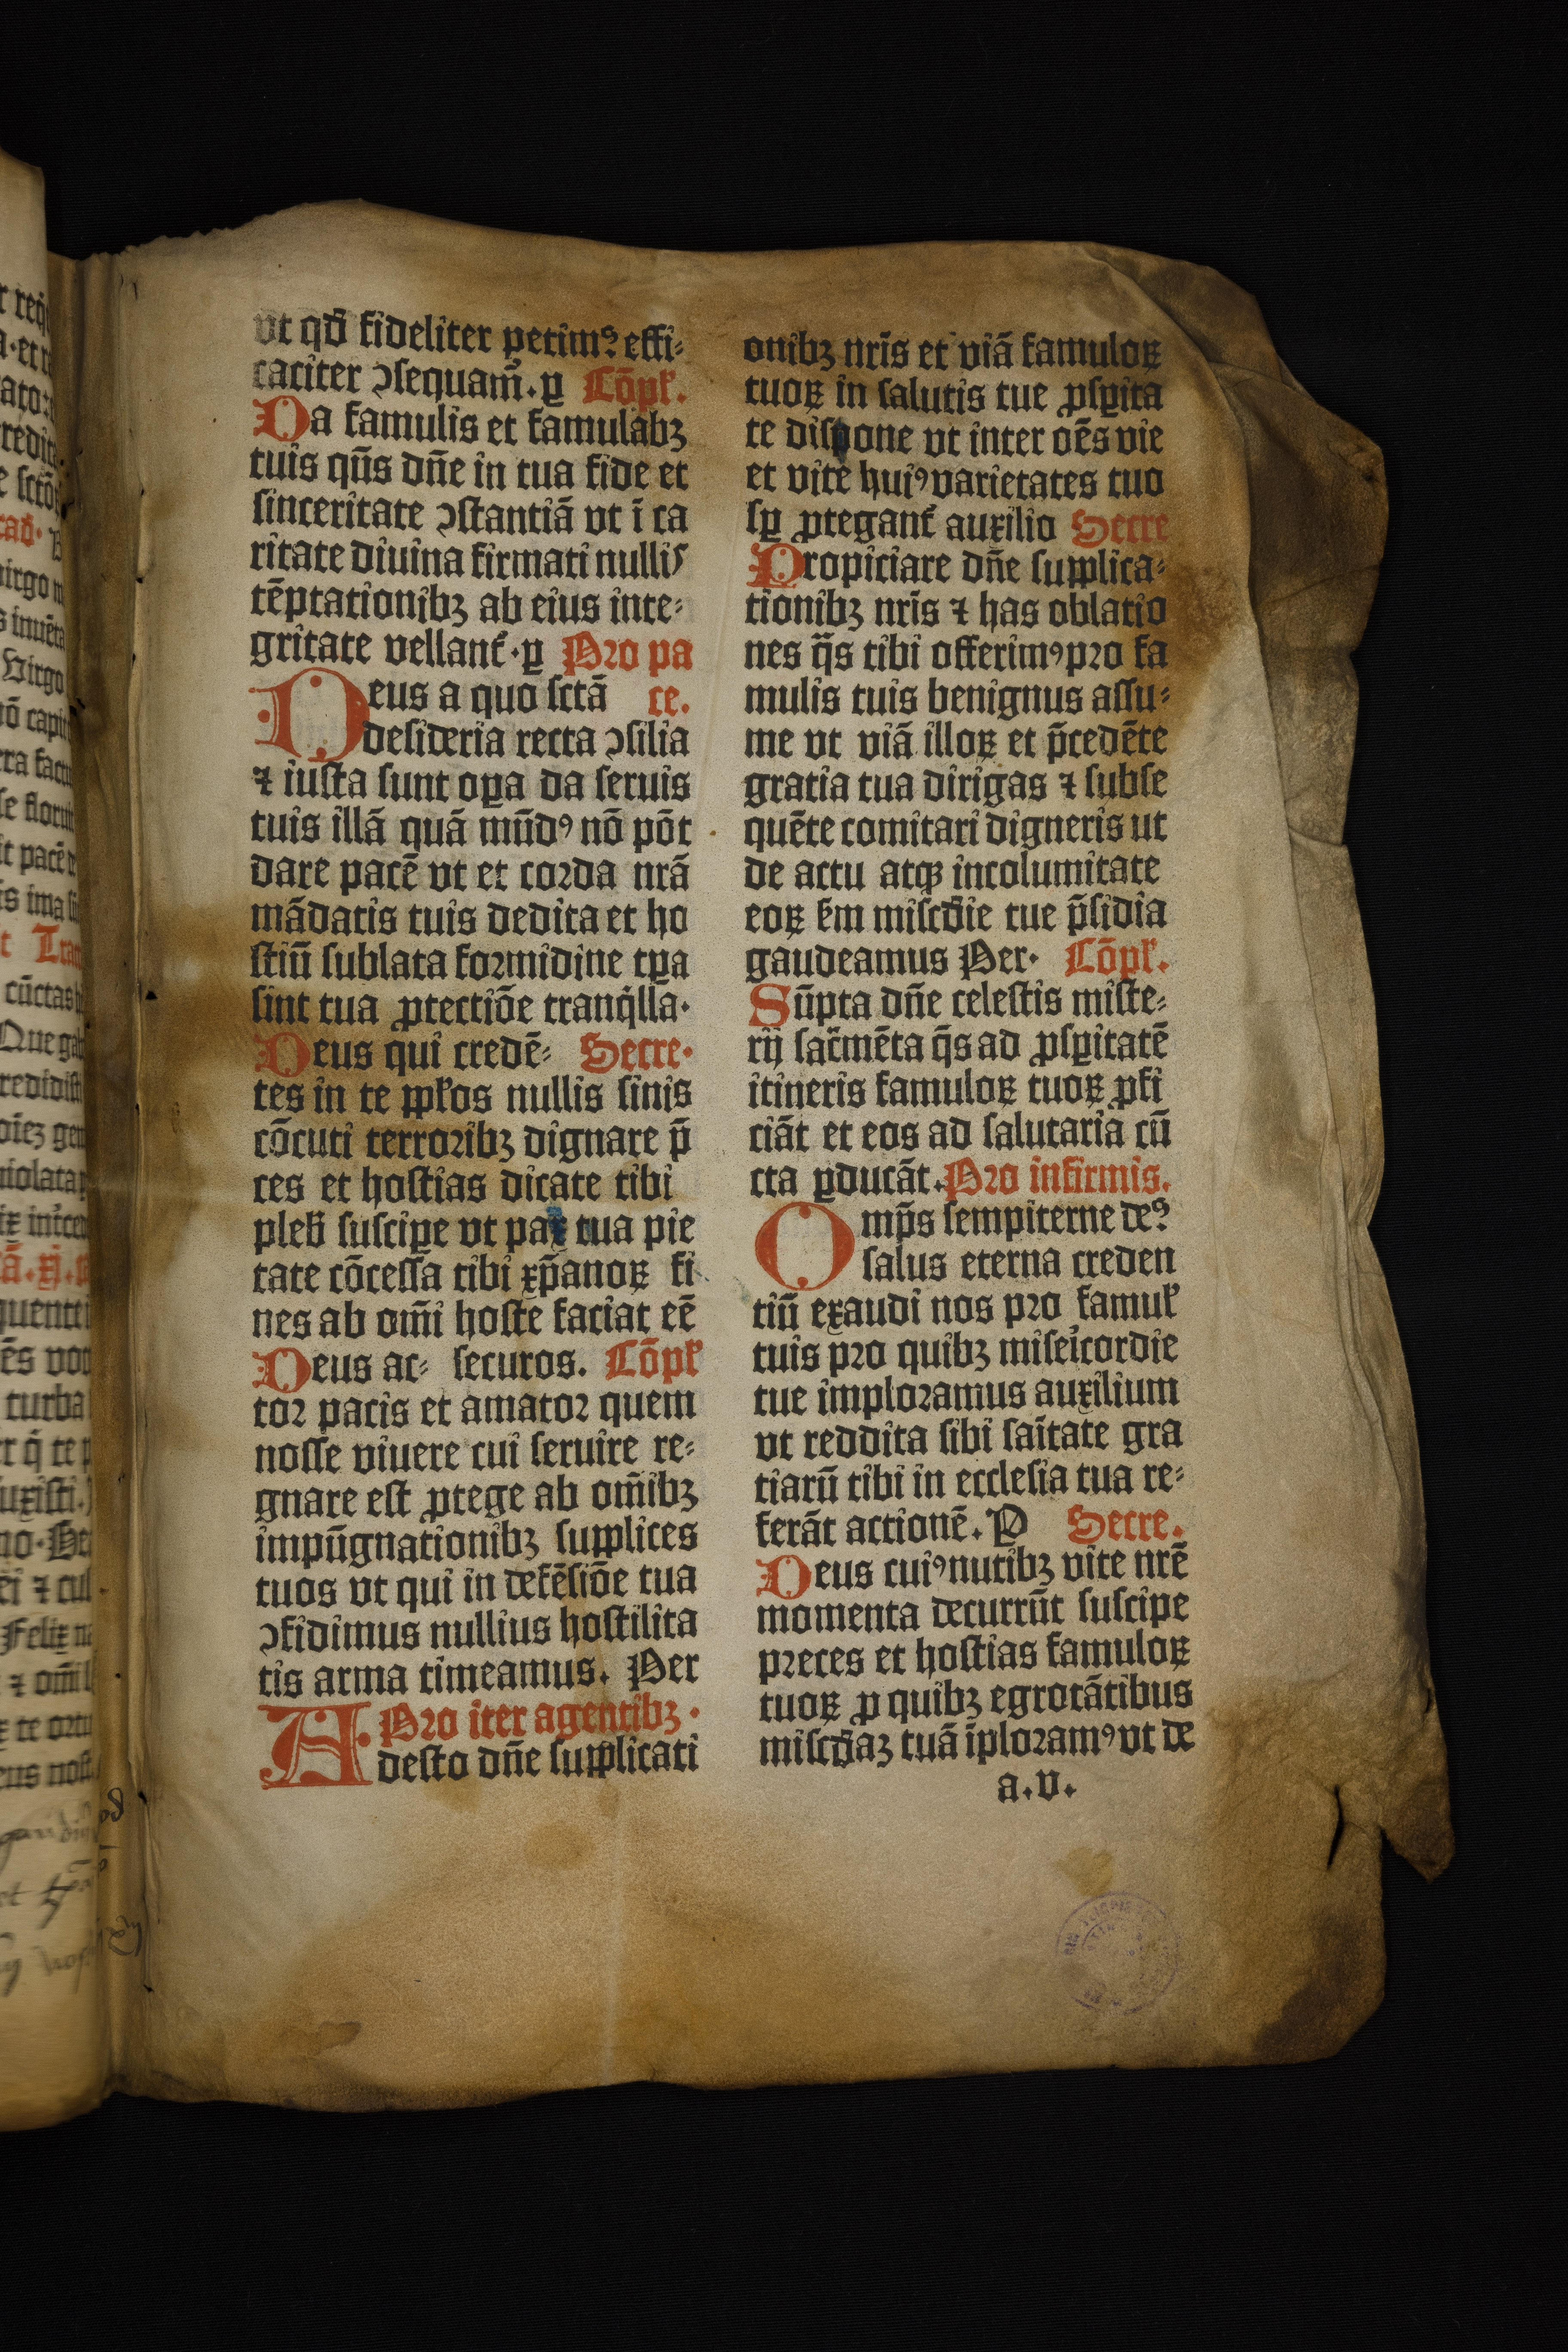 vt qđ fideliter petimꝰ effi⸗
caciter ꝯsequam̃. ꝑ Cõpł.
Da famulis et famulabꝫ
tuis qũs dñe in tua fide et
sinceritate ꝯstantiã vt ĩ ca
ritate diuina firmati nullis
tẽptationibꝫ ab eius inte⸗
gritate vellant᷑. ꝑ Pro pa
Deus a quo sctã ce.
desideria recta ꝯsilia
⁊ iusta sunt oꝑa da seruis
tuis illã quã mũdꝰ nõ põt
dare pacẽ vt et corda nrã
mãdatis tuis dedita et ho
stiũ sublata formidine tꝑa
sint tua ꝓtectiõe tranq̃lla.
Deus qui credẽ⸗ Secre.
tes in te ppłos nullis sinis
cõcuti terroribꝫ dignare p̃
ces et hostias dicate tibi
pleb̃ suscipe vt pax tua pie
tate cõcessa tibi xp̃anoꝝ fi
nes ab om̃i hoste faciat eẽ
Deus ac⸗ securos. Cõpł
tor pacis et amator quem
nosse viuere cui seruire re⸗
gnare est ꝓtege ab om̃ibꝫ
impũgnationibꝫ supplices
tuos vt qui in defẽsiõe tua
ꝯfidimus nullius hostilita
tis arma timeamus. Per
Pro iter agentibꝫ.
Adesto dñe supplicati
onibꝫ nrĩs et viã famuloꝝ
tuoꝝ in salutis tue ꝓsꝑita
te dispone vt inter oẽs vie
et vite huiꝰ varietates tuo
sꝑ ꝓtegant᷑ auxilio Secre
Propiciare dñe supplica⸗
tionibꝫ nrĩs ⁊ has oblatio
nes q̃s tibi offerimꝰ pro fa
mulis tuis benignus assu⸗
me vt viã illoꝝ et p̃cedẽte
gratia tua dirigas ⁊ subse
quẽte comitari digneris ut
de actu atqꝫ incolumitate
eoꝝ ẜm miscđie tue p̃sidia
gaudeamus Per. Cõpł.
Sũpta dñe celestis miste⸗
rij sac̃mẽta q̃s ad ꝓsꝑitatẽ
itineris famuloꝝ tuoꝝ ꝓfi
ciãt et eos ad salutaria cũ
cta ꝑducãt. Pro infirmis.
Omp̃s sempiterne deꝰ
salus eterna creden
tiũ exaudi nos pro famuł
tuis pro quibꝫ miseicordie
tue imploramus auxilium
vt reddita sibi saĩtate gra
tiarũ tibi in ecclesia tua re⸗
ferãt actionẽ. P Secre.
Deus cuiꝰ nutibꝫ vite nrẽ
momenta decurrũt suscipe
preces et hostias famuloꝝ
tuoꝝ ꝓ quibꝫ egrotãtibus
miscđiaꝫ tuã ĩploramꝰ vt de
a. v.